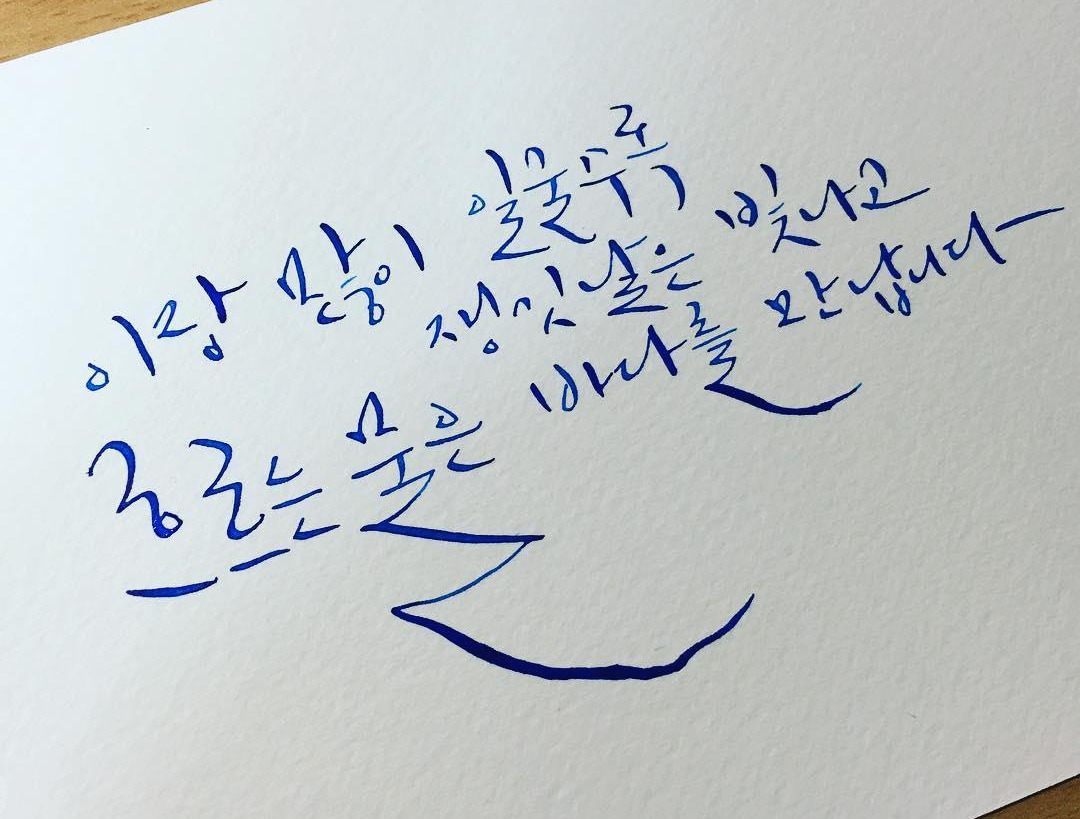 이랑 많이 일굴수록
쟁깃날은 빛나고
흐르는 물은 바다를 만납니다